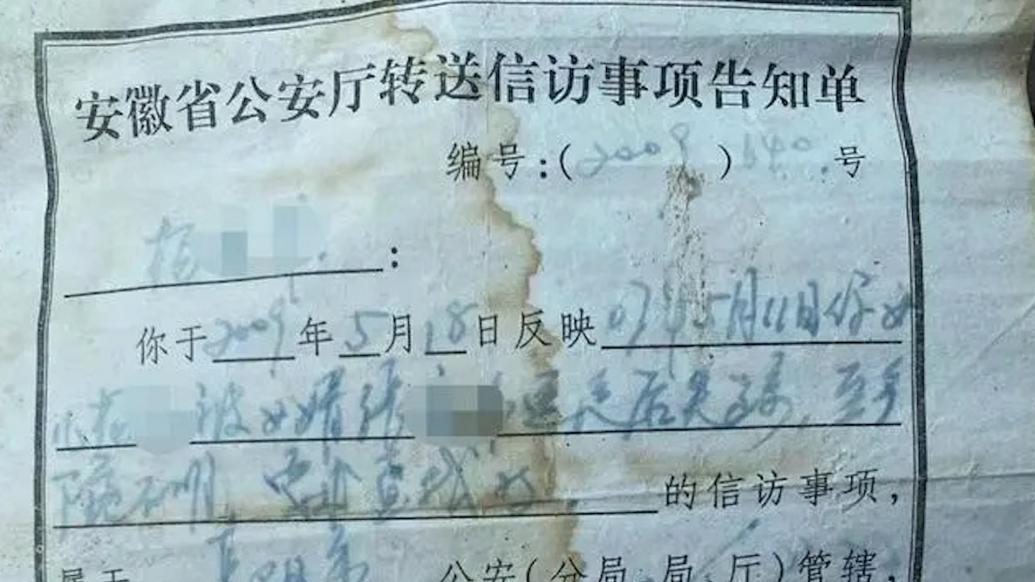 安徽省公安厅转送信访事项告知单
编号:(2009)640号
:
你于2009年5月18日反映07年5月11日你女
小 被女婿张 后失踪,至今
下落不明,要求查找 的信访事项,
属于 公安(分局 局 厅)管辖,